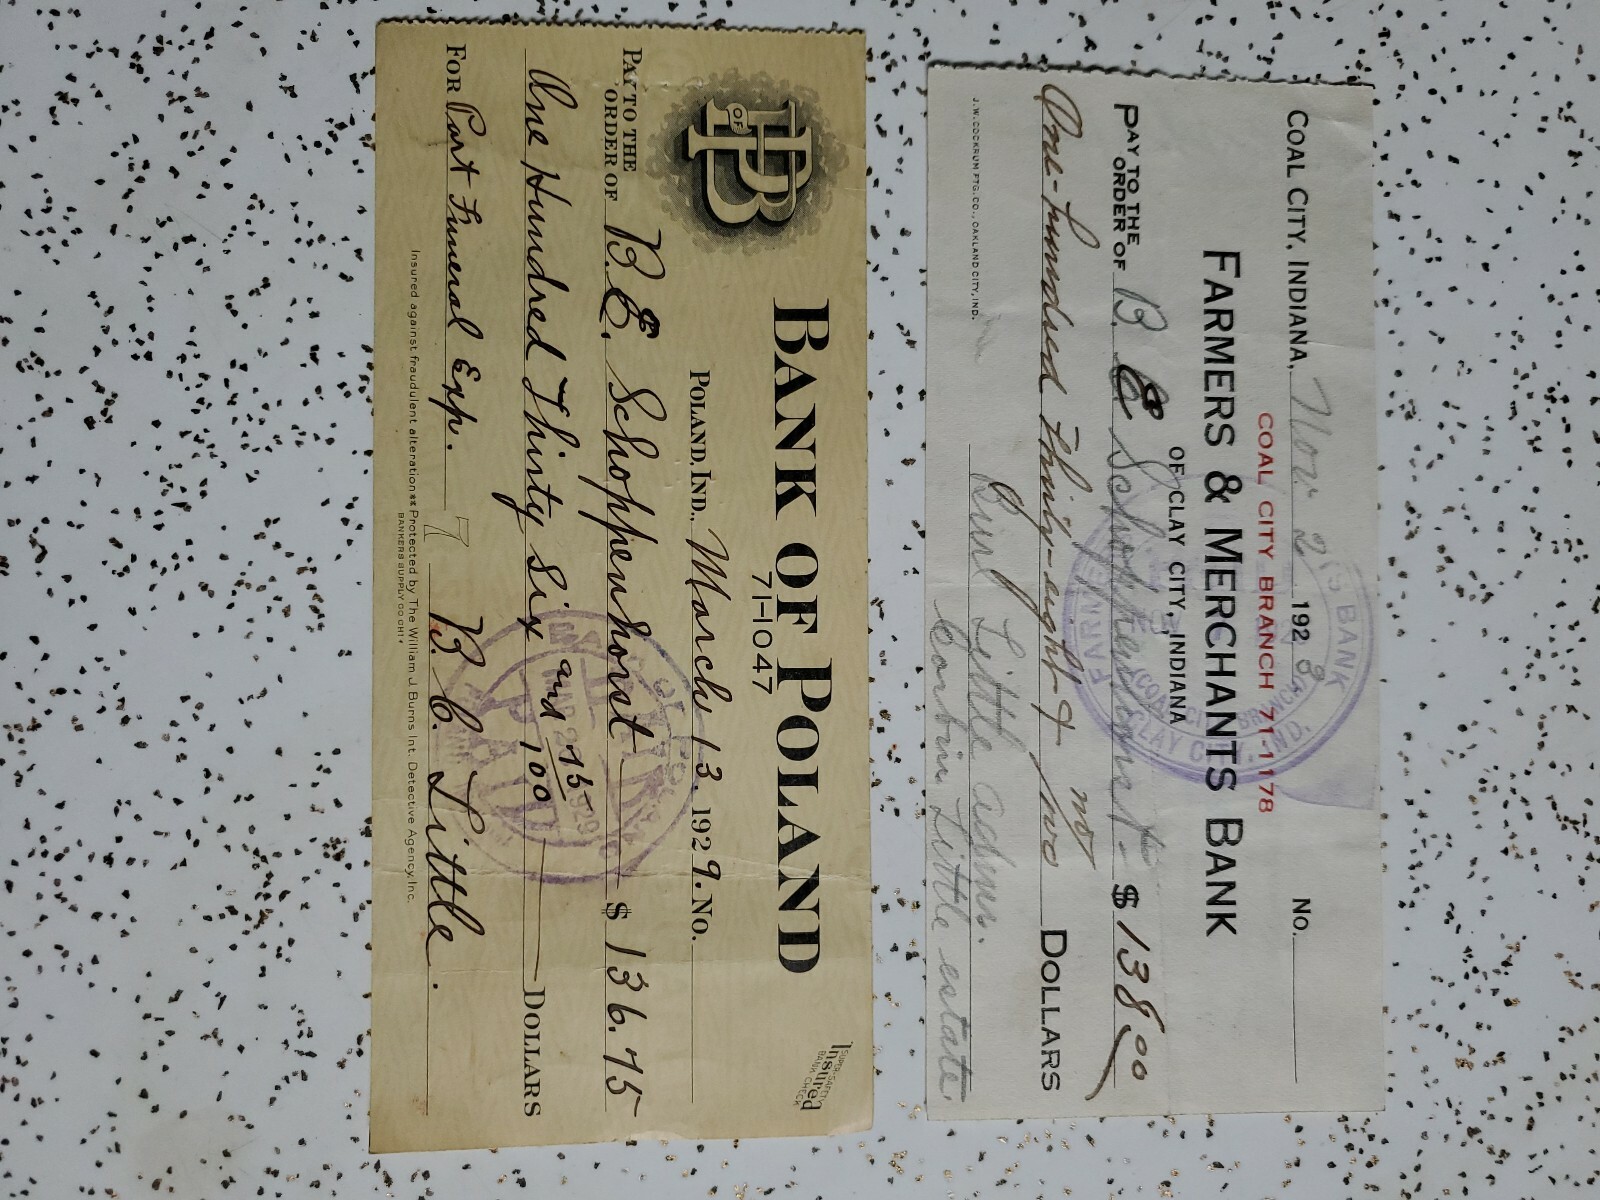 COAL CITY, INDIANA, Nov 2 1928 No.
COAL CITY BRANCH 71-1178
FARMERS & MERCHANTS BANK
OF CLAY CITY, INDIANA
PAY TO THE ORDER OF B. E Schoppenhorst $ 138 00
One-hundred Thirty-eight & no/100 DOLLARS
Burl Little adms.
Corbin Little estate
J.W. COCKRUM PTG. CO., OAKLAND CITY, IND.
Insured
BANK OF POLAND
71-1047
B OF P
POLAND, IND., March 13, 1929. No.
PAY TO THE ORDER OF B.E. Schoppenhorst $ 136.75
One Hundred Thirty Six and 75/100 DOLLARS
FOR Part Funeral Exp. B. C. Little.
Insured against fraudulent alteration Protected by The William J. Burns Int. Detective Agency, Inc.
BANKERS SUPPLY CO. CHI